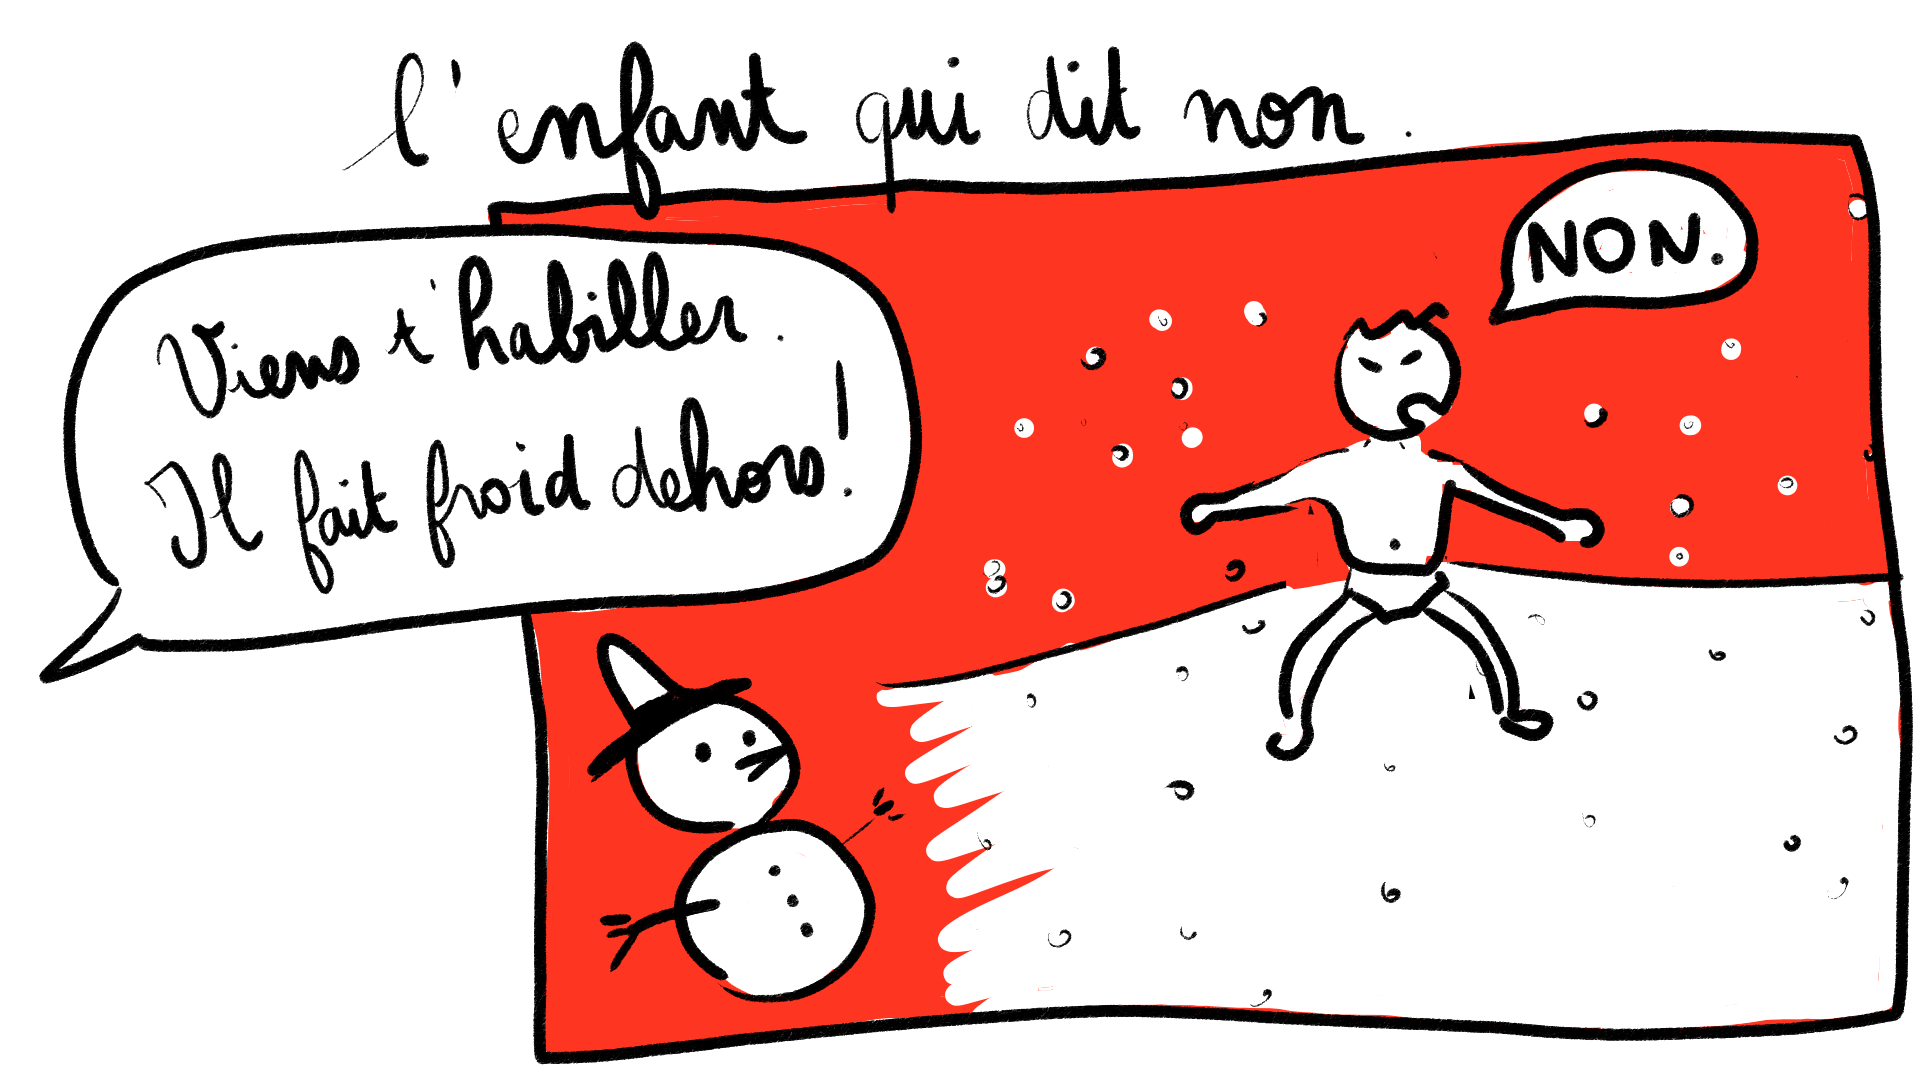 l'enfant qui dit non.
Viens t'habiller.
Il fait froid dehors!
NON.